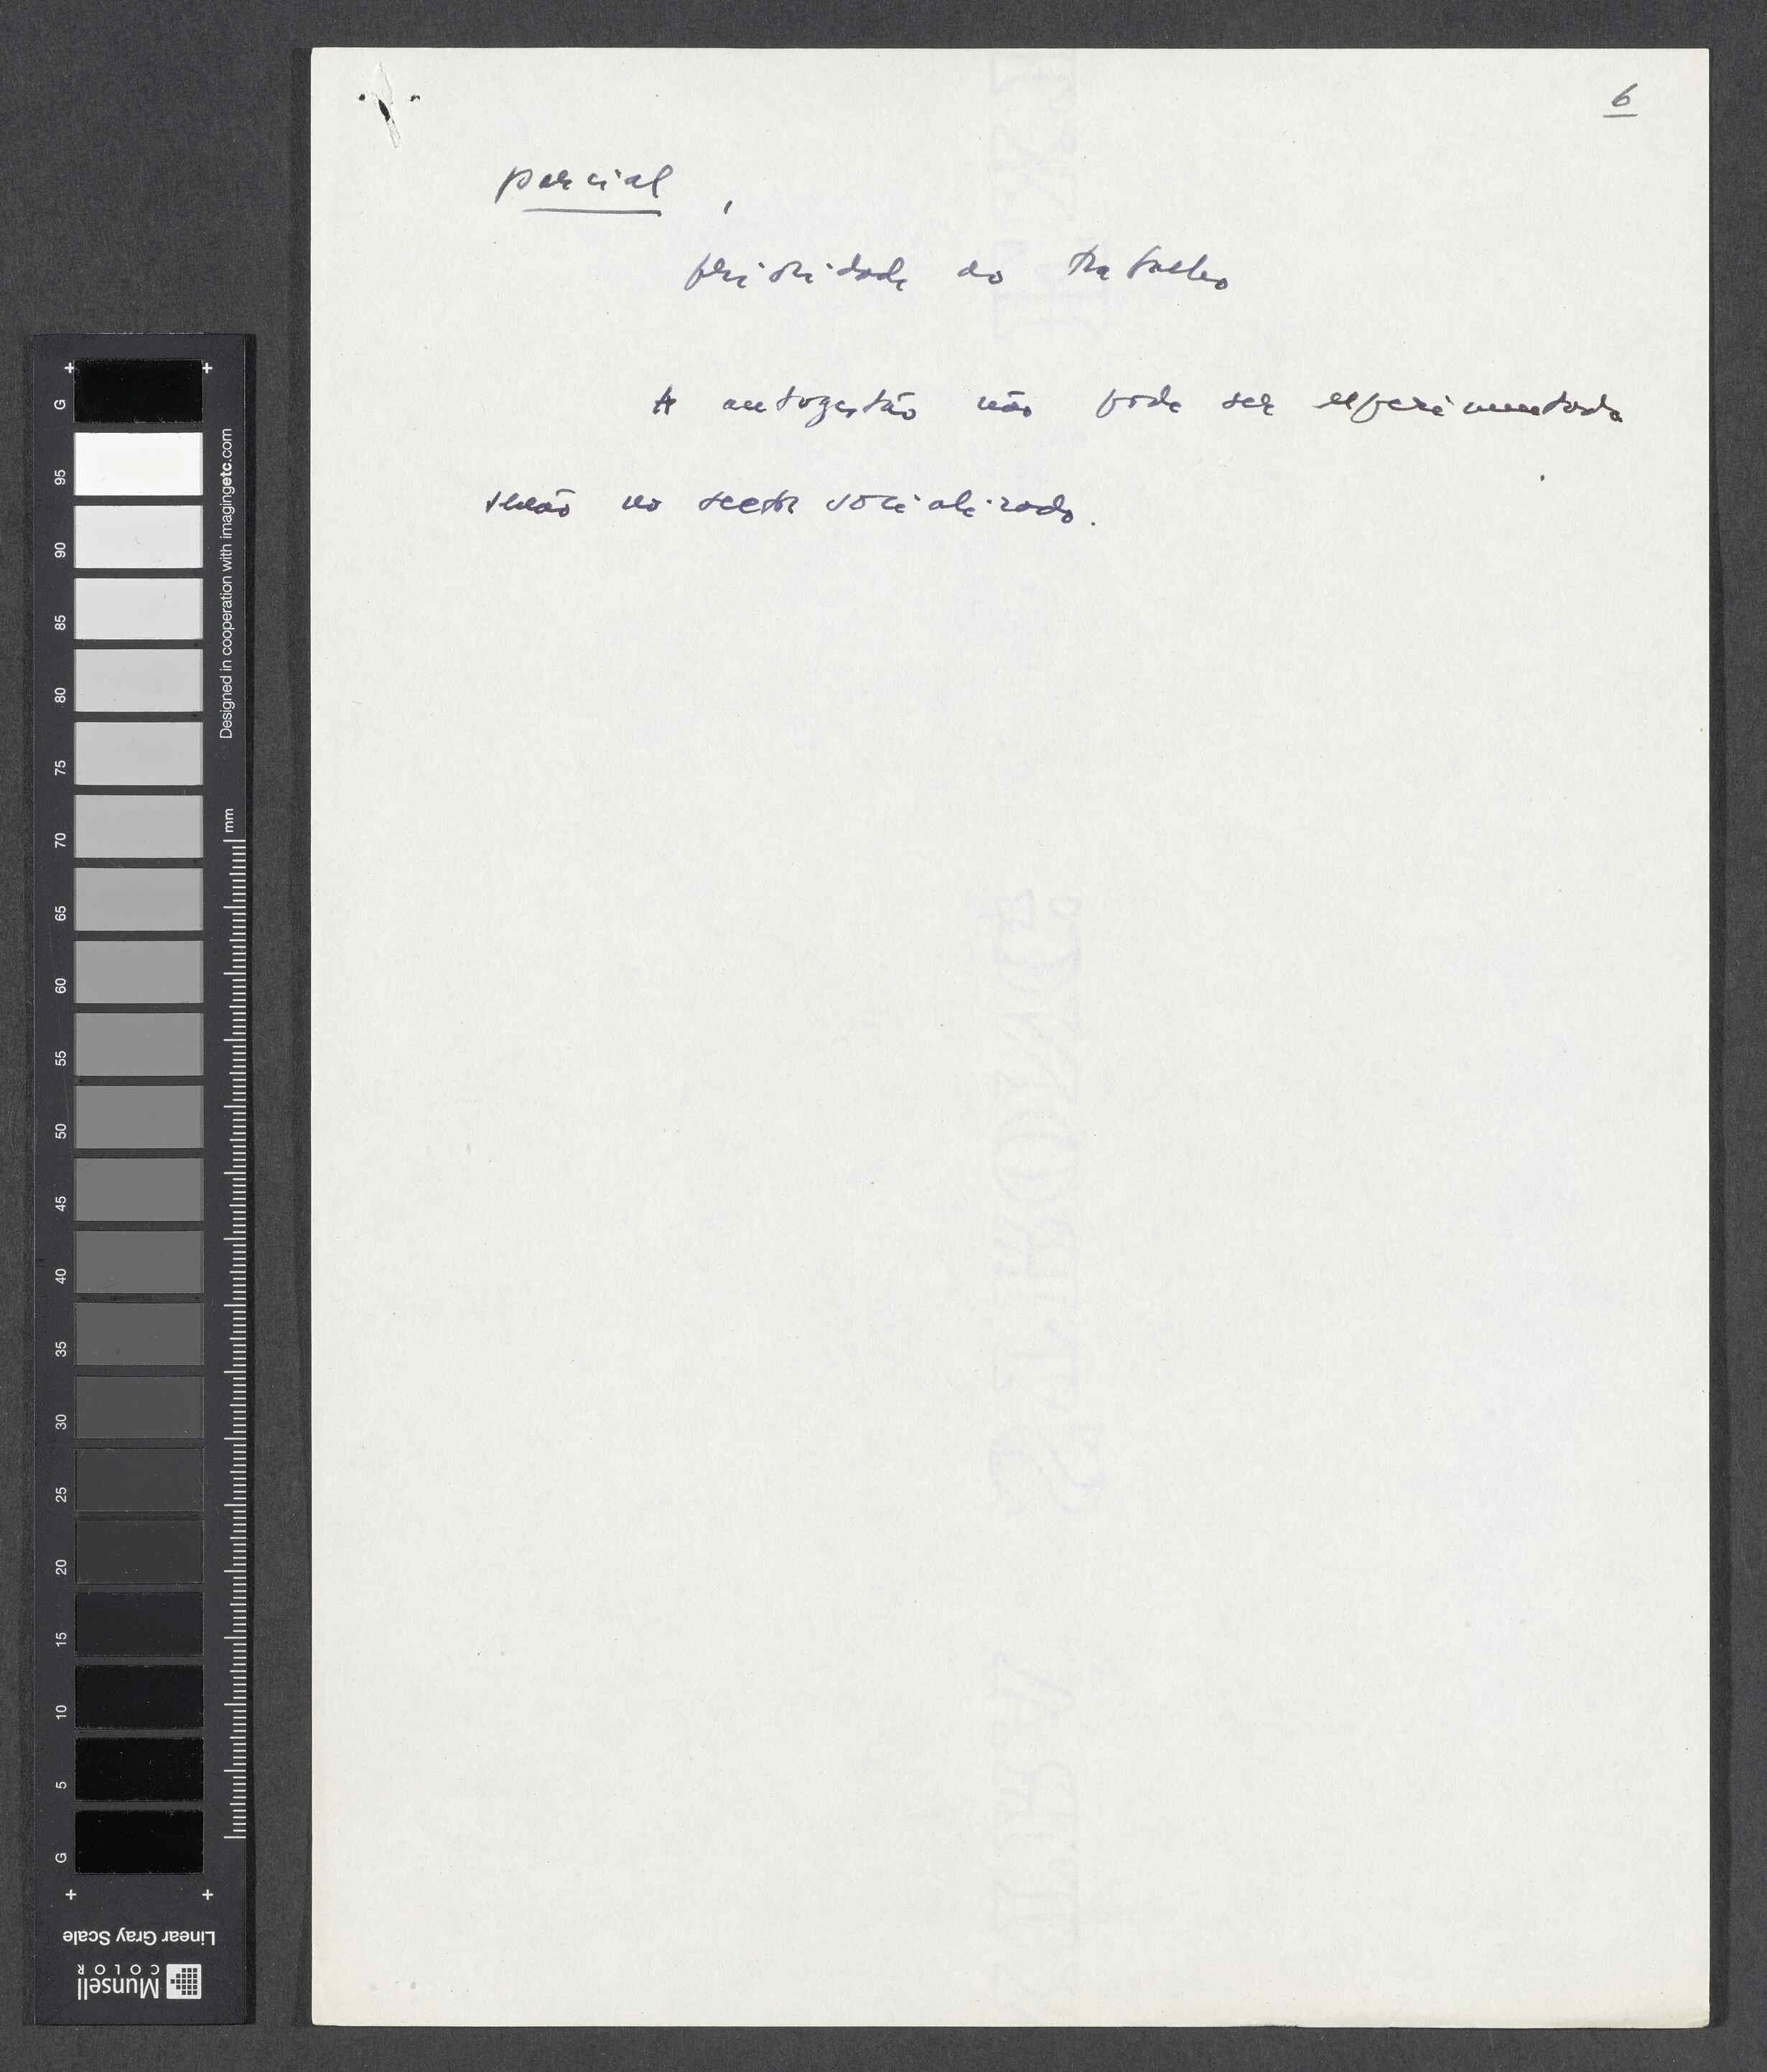 6
parcial,
prioridade ao trabalho
A autogestão não pode ser experimentada
senão no sector socializado.
G
95
90
85
80
75
70
65
60
55
50
45
40
35
30
25
20
15
10
5
G
Designed in cooperation with imagingetc.com
mm
Linear Gray Scale
Munsell
COLOR